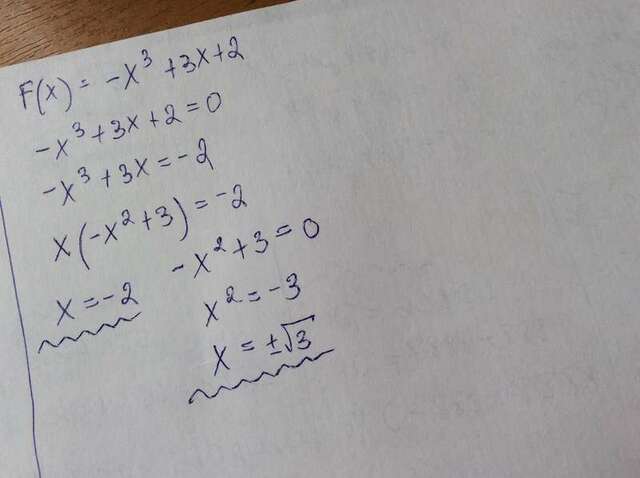 F(x) = -x³ + 3x + 2
-x³ + 3x + 2 = 0
-x³ + 3x = -2
x(-x² + 3) = -2
x = -2 -x² + 3 = 0
x² = -3
x = ±√3